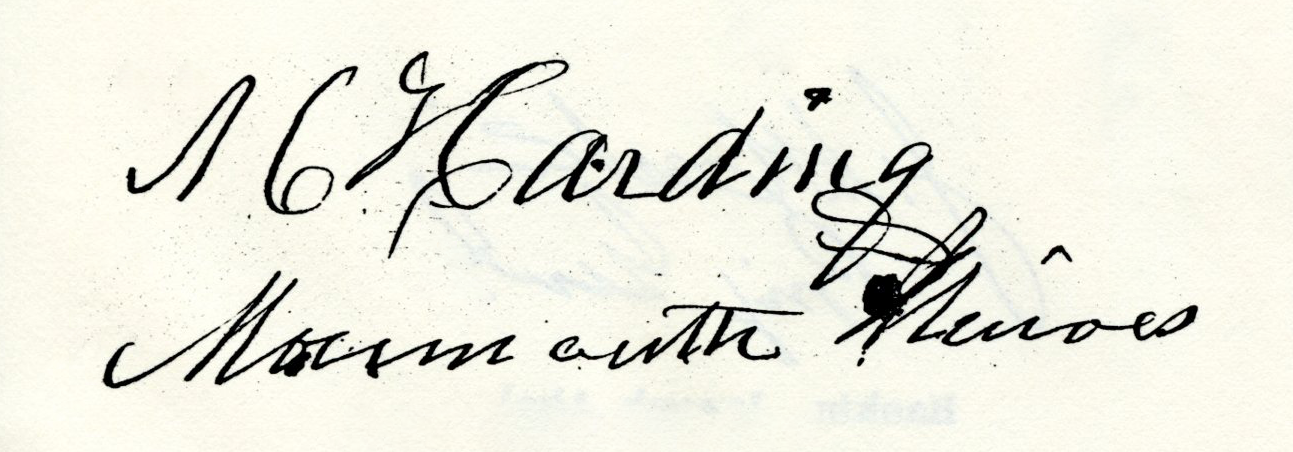 A C Harding
Monmouth Illinois